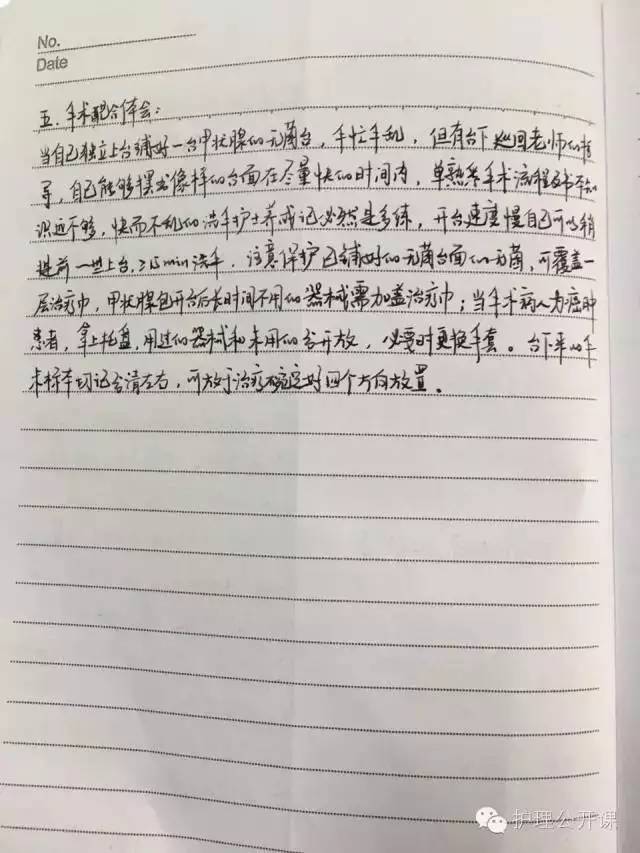 No.
Date
五. 手术配合体会：
当自己独立上台铺好一台甲状腺的无菌台，手忙手乱，但有台下巡回老师的指
导，自己能够摆出像样的台面在尽量快的时间内，单熟悉手术流程及书本知
识远不够，快而不乱的洗手护士养成记必然是多练，开台速度慢自己可以稍
提前一些上台，≥15min洗手．注意保护已铺好的无菌台面的无菌，可覆盖一
层治疗巾，甲状腺包开台后长时间不用的器械需加盖治疗巾；当手术病人为癌肿
患者，拿上托盘，用过的器械和未用的分开放，必要时更换手套。台下来的手
术标本切记分清左右，可放于治疗碗定好四个方向放置。
护理公开课